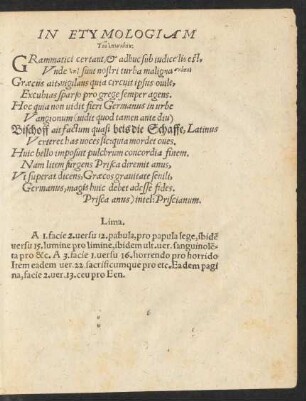 IN ETYMOLOGIAM
GRammatici certant, & adhuc sub iudice lis est,
Vnde sint nostri turba maligna
Græcus ait uigilans quia circuit ipsus ouile,
Excubias sparso pro grege semper agens.
Hoc quia non uidit fieri Germanus in urbe
Vangionum (uidit quod tamen ante diu)
Bischoff ait factum quasi beis die Schaffe, Latinus
Verteret has uoces sic quita mordet oues.
Huic bello imposuit pulchrum concordia finem,
Nam litem surgens Prisca diremit anus,
Vt superat dicens, Græcos grauitate senili,
Germanus, magis huic debet adesse fides.
Prisca anus) intel: Priscianum.
Lima.
A 1. facie 2. uersu 12. pabula, pro papula lege, ibidē
uersu 15. lumine pro limine, ibidem ult. uer. sanguinolē
ta pro &c. A 3. facie 1. uersu 16. horrendo pro horrido
Item eadem uer. 22 sacrificumque pro etc. Eadem pagi
na, facie 2. uer. 13. ceu pro Een.